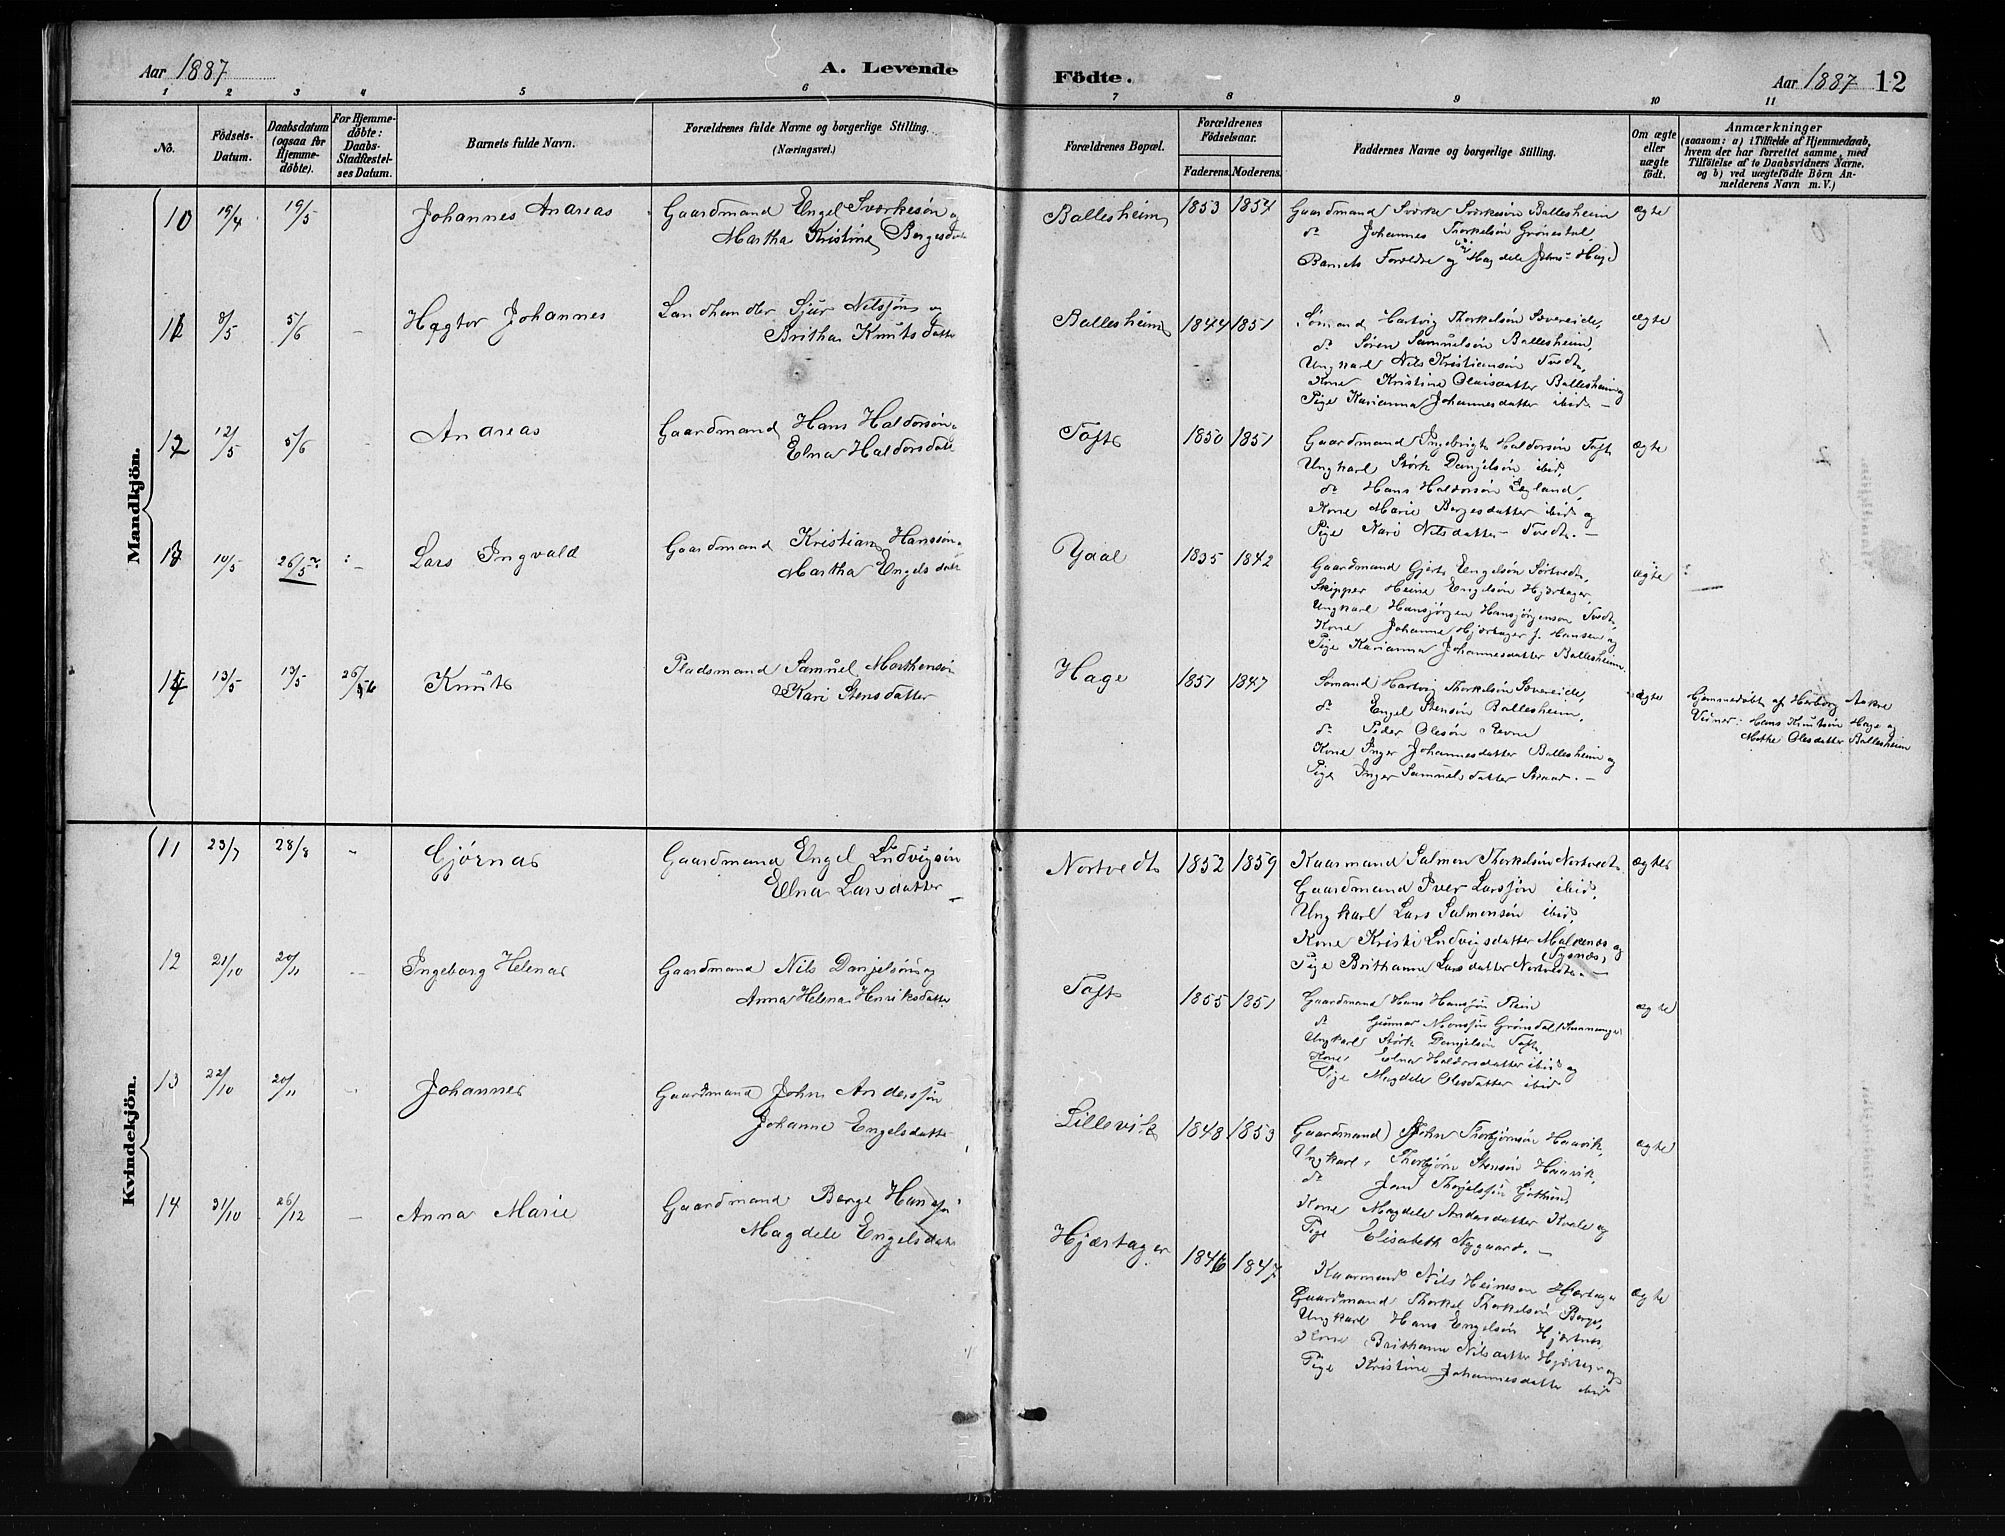 Aar 1887
A. Levende Födte.
Aar 1887 12
1 2 3 4 5 6 7 8 9 10 11
No.
Födsels-Datum.
Daabsdatum (ogsaa for Hjemme-döbte).
For Hjemme-döbte: Daabs-Stadfæstel-ses Datum.
Barnets fulde Navn.
Forældrenes fulde Navne og borgerlige Stilling. (Næringsvei.)
Forældrenes Bopæl.
Forældrenes Födselsaar.
Faderens. Moderens.
Faddernes Navne og borgerlige Stilling.
Om ægte eller uægte födt.
Anmærkninger
(saasom: a) i Tilfælde af Hjemmedaab,
hvem der har forrettet samme, med
Tilföielse af to Daabsvidners Navne,
og b) ved uægtefödte Börn An-
melderens Navn m. V.)
Mandkjön.
10 15/4 19/5 Johannes Andreas Gaardmand Engel Sværkesøn og
Martha Kristine Børgesdatter
Ballesheim 1853 1854 ægte
Gaardmand Sværke Sværkesøn Ballesheim
do Johannes Thorkelsøn Grønestøl
Barnets Forældre og Magdele Johns Hage
11 8/5 5/6 - Hagtor Johannes Landhandler Sjur Nilssøn og
Britha Knutsdatter
Ballesheim 1844 1851 ægte
Sømand Hartvig Thorkelsøn Sævereide,
do Søren Samuelsøn Ballesheim,
Ungkarl Nils Kristiansøn Tvedt,
Kone Kristine Olaisdatter Ballesheim og
Pige Karianna Johannesdatter ibid. -
12 12/5 5/6 - Andreas Gaardmand Hans Haldorsøn
Elna Haldorsdatter
Toft 1850 1851 ægte
Gaardmand Ingebrigt Haldorsøn Toft
Ungkarl Størk Danjelsøn ibid,
do Hans Haldorsøn Egland,
Kone Marie Børgesdatter ibid og
Pige Kari Nilsdatter Tvedt. -
13 10/5 26/5 - Lars Ingvald Gaardmand Kristian Hanssøn
Martha Engelsdatter
Ydal 1835 1842 ægte
Gaardmand Gjert Engelsøn Sørtvedt,
Skipper Heine Engelsøn Hjærtager,
Ungkarl Hansjørgen Hansjørgensøn Tvedt,
Kone Johanne Hjærtager f. Hansen og
Pige Karianna Johannesdatter Ballesheim
14 13/5 13/5 26/6 Knut Pladsmand Samuel Mathensøn
Kari Stensdatter
Hage 1851 1847 ægte
Sømand Hartvig Thorkelsøn Sævereide,
do Engel Stensøn Ballesheim,
do Peder Olesøn Revne
Kone Inger Johannesdatter Ballesheim og
Pige Inger Samuelsdatter
Hjemmedøbt af Herborg Aakre
Vidner: Hans Knutsøn Hage og
Mette Olesdatter Ballesheim
Kvindekjön.
11 23/7 28/8 - Gjørna Gaardmand Engel Ludvigsøn
Elna Larsdatter -
Nortvedt 1852 1859 ægte
Kaarmand Salmon Thorkelsøn Nortvedt,
Gaardmand Iver Larssøn ibid,
Ungkarl Lars Salmonsøn ibid,
Kone Kristi Ludvigsdatter Malkenæs og (Tysnæs)
Pige Brithanne Larsdatter Nortvedt. -
12 21/10 20/11 - Ingeborg Helena Gaardmand Nils Danjelsøn og
Anna Helena Henriksdatter
Toft 1855 1851 ægte
Gaardmand Hans Hanssøn Stein
do Gunnar Monssøn Grønsdal
Ungkarl Størk Danjelsøn Toft,
Kone Elna Haldorsdatter ibid og
Pige Magdele Olesdatter ibid
13 22/10 20/11 - Johanne Gaardmand John Anderssøn
Johanne Engelsdatter
Lillevik 1848 1853 ægte
Gaardmand John Thorbjørnsøn Haavik,
Ungkarl Thorbjørn Stensøn Haavik
do
Kone Magdele Andersdatter Kvale og
Pige Elisabeth Nygaard. -
14 31/10 26/12 - Anna Marie Gaardmand Børge Hanssøn
Magdele Engelsdatter
Hjærtager 1846 1847 ægte
Kaarmand Nils Heinesøn Hjærtager
Gaardmand Thorkel Thorkelsøn Berge,
Ungkarl Hans Engelsøn Hjærtnes,
Kone Brithanne Nilsdatter Hjærtager og
Pige Kristine Johannesdatter ibid